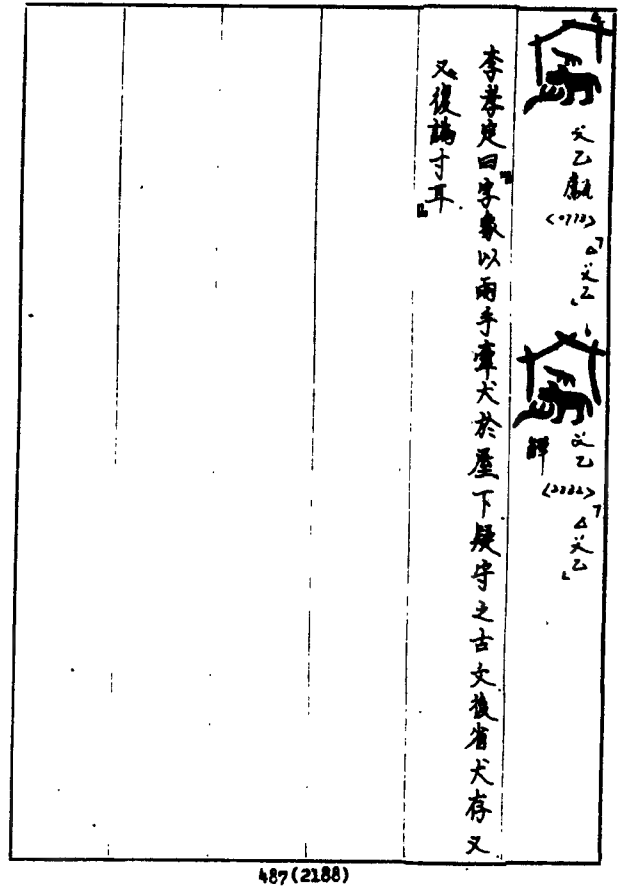 父乙甗(0773)「△父乙」
父乙觶(2222)「△父乙」
李孝定曰「字象以兩手牽犬於屋下疑守之古文後省犬存又
又復譌寸耳」
487(2188)